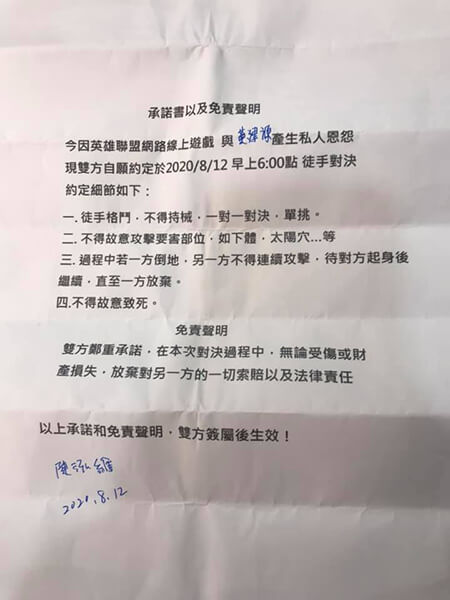 承諾書以及免責聲明
今因英雄聯盟網路線上遊戲 與 產生私人恩怨
現雙方自願約定於2020/8/12 早上6:00點 徒手對決
約定細節如下：
一. 徒手格鬥，不得持械，一對一對決，單挑。
二. 不得故意攻擊要害部位，如下體，太陽穴…等
三. 過程中若一方倒地，另一方不得連續攻擊，待對方起身後
繼續，直至一方放棄。
四.不得故意致死。
免責聲明
雙方鄭重承諾，在本次對決過程中，無論受傷或財
產損失，放棄對另一方的一切索賠以及法律責任
以上承諾和免責聲明，雙方簽屬後生效！
2020.8.12